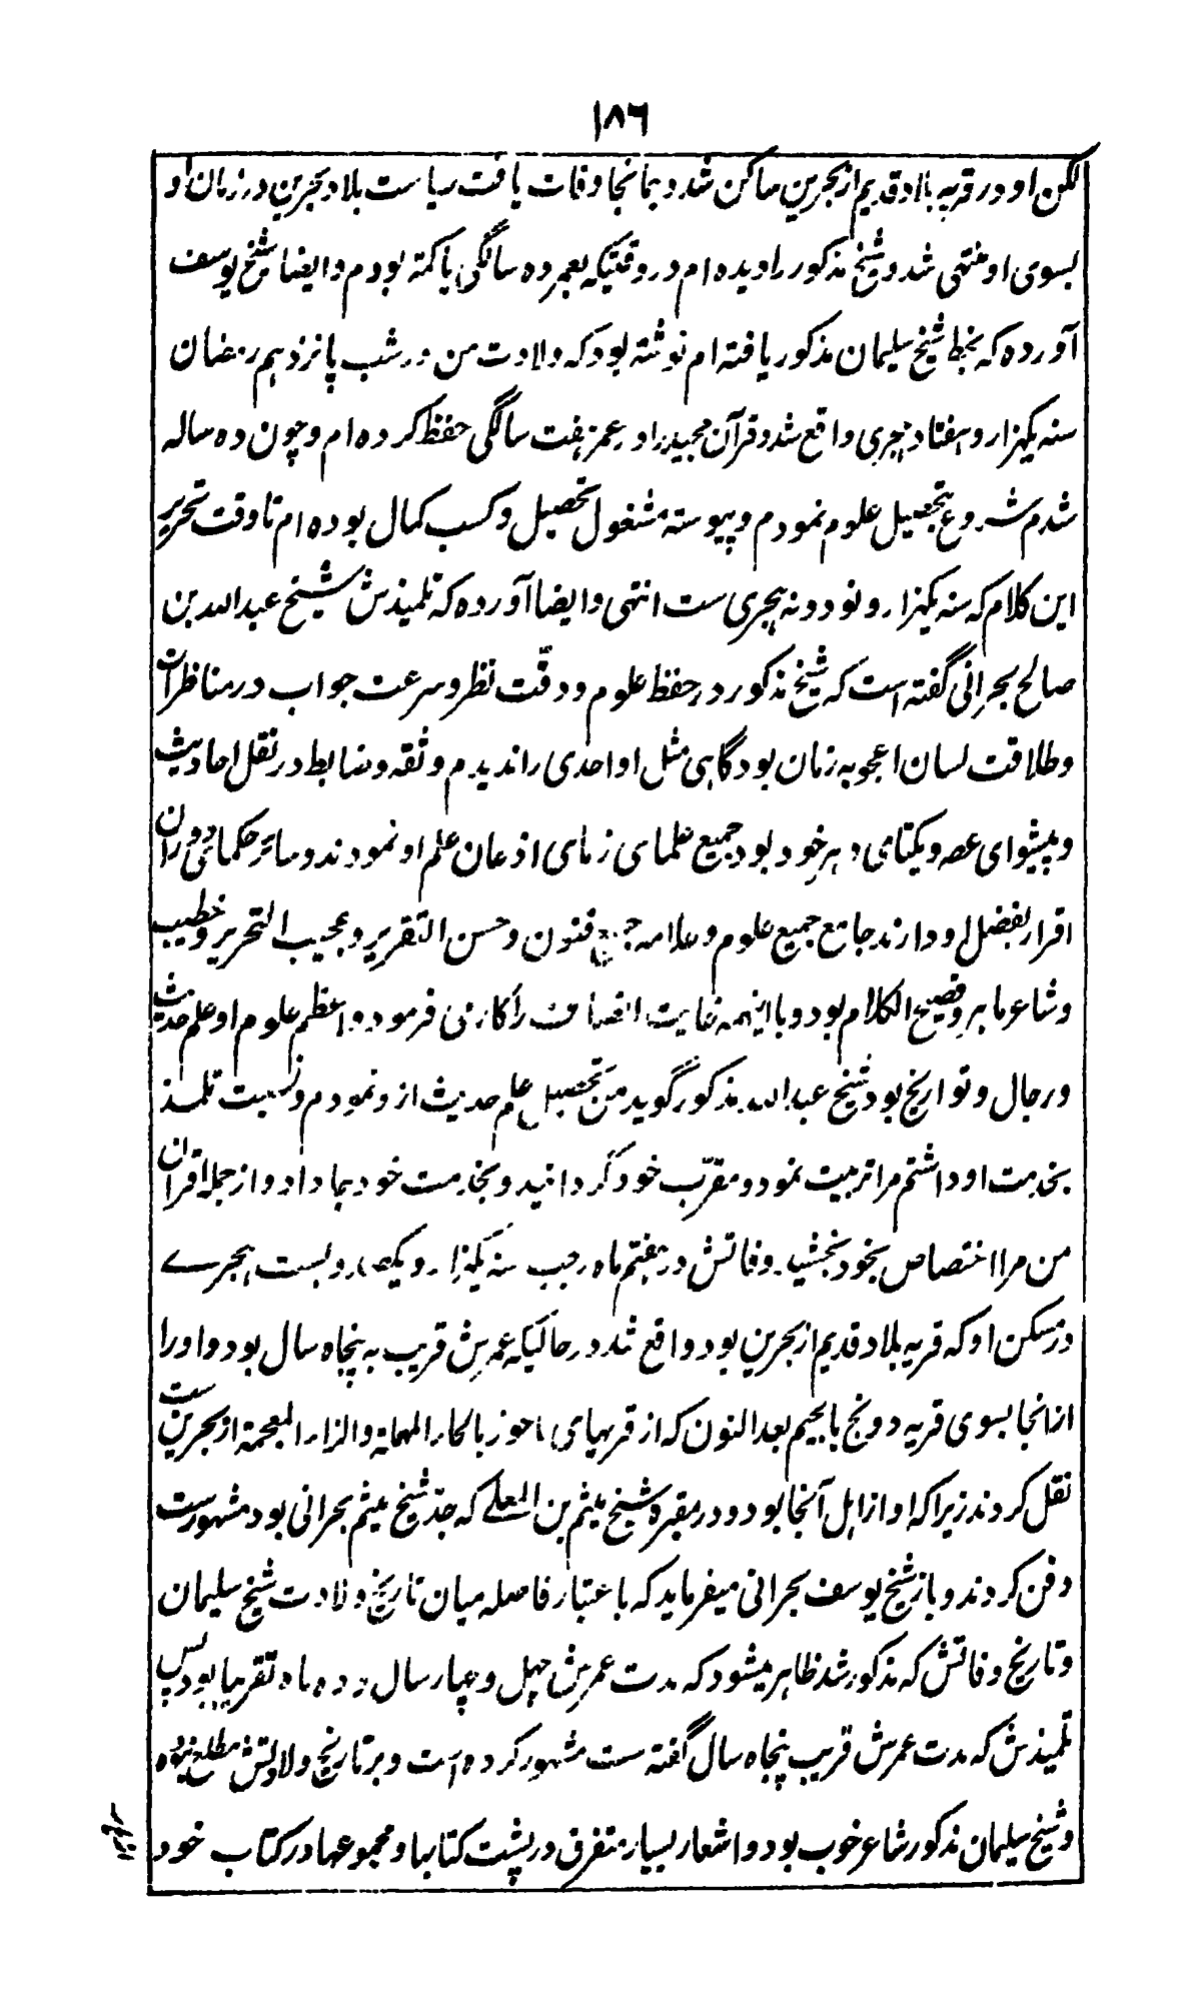 ۱۸۶
لکن او در قریه بلاد قدیم از بحرین ساکن شد و بمانجا وفات یافت ریاست بلاد بحرین در زمان او
بسوی او منتهی شد و شیخ مذکور را دیده ام در وقتیکه بعمر ده سالگی یا کمتر بودم و ایضا شیخ یوسف
آورده که بخط شیخ سلیمان مذکور یافته ام نوشته بود که ولادت من در شب پانزدهم رمضان
سنه یکهزار و هفتاد و پنج هجری واقع شد و قرآن مجید را در عمر هفت سالگی حفظ کرده ام و چون ده ساله
شدم شروع بتحصیل علوم نمودم و پیوسته مشغول تحصیل و کسب کمال بوده ام تا وقت تحریر
این کلام که سنه یکهزار و نود و نه هجری ست انتهی و ایضا آورده که تلمیذش شیخ عبدالله بن
صالح بحرانی گفته است که شیخ مذکور در حفظ علوم و دقّت نظر و سرعت جواب در مناظرات
و طلاقت لسان اعجوبه زمان بود گاهی مثل او احدی را ندیدم و ثقه و ضابط در نقل احادیث
و پیشوای عصر و یکتای دهر خود بود جمیع علمای زمان اذعان علم او نمودند و سائر حکمای دوران
اقرار بفضل او دارند جامع جمیع علوم و علامه جمیع فنون و حسن التقریر و عجیب التحریر و خطیب
و شاعر ماهر و فصیح الکلام بود و با اینهمه غایت انصاف را کار می فرمود و اعظم علوم او علم حدیث
و رجال و تواریخ بود شیخ عبدالله مذکور گوید من تحصیل علم حدیث از و نمودم و نسبت تلمذ
بخدمت او داشتم مرا تربیت نمود و مقرّب خود گردانید و بخدمت خود بما داد و از جمله اقران
من مرا اختصاص بخود بخشید وفاتش در هفتم ماه رجب سنه یکهزار و یکصد و بست هجرے
در مسکن او که قریه بلاد قدیم از بحرین بود واقع شد در حالیکه عمرش قریب به پنجاه سال بود و او را
از انجا بسوی قریه دونج بالجیم بعد النون که از قریهای ماحوز بالحاء المهملة والزاء المعجمة از بحرین ست
نقل کردند زیرا که او از اهل آنجا بود و در مقبره شیخ میثم بن المعلے که جدّ شیخ میثم بحرانی بود مشهورست
دفن کردند و باز شیخ یوسف بحرانی میفرماید که باعتبار فاصله میان تاریخ ولادت شیخ سلیمان
و تاریخ وفاتش که مذکور شد ظاهر میشود که مدت عمرش چهل و چهار سال و ده ماه تقریبا بود پس
تلمیذش که مدت عمرش قریب پنجاه سال گفته ست مشهور کرده است و بر تاریخ ولادتش مطلع نبوده
و شیخ سلیمان مذکور شاعر خوب بود و اشعار بسیار متفرق در پشت کتابها و مجموعها در کتاب خود